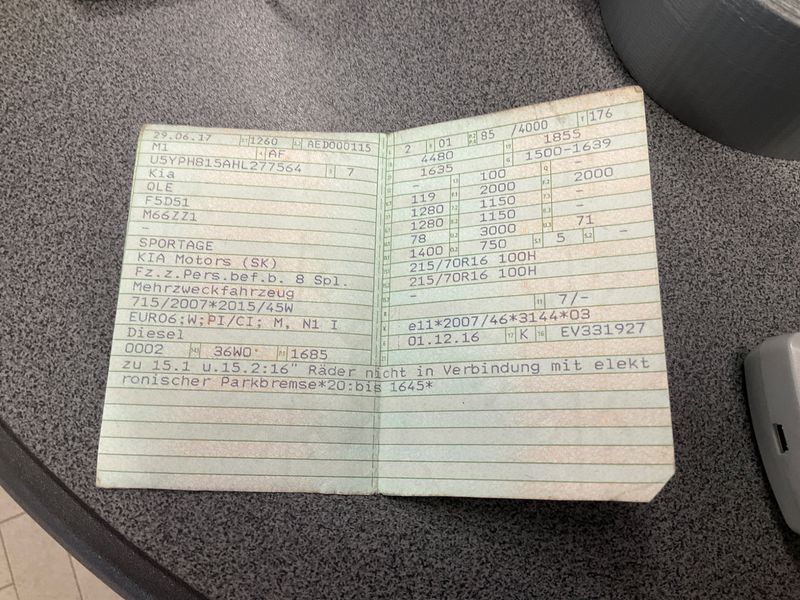 29.06.17 1260 AED000115
M1 AF
U5YPH815AHL277564 7
Kia
QLE
F5D51
M66ZZ1
-
SPORTAGE
KIA Motors (SK)
Fz.z.Pers.bef.b. 8 Spl.
Mehrzweckfahrzeug
715/2007*2015/45W
EURO6;W;PI/CI; M, N1 I
Diesel
0002 36W0 1685
zu 15.1 u.15.2:16" Räder nicht in Verbindung mit elekt
ronischer Parkbremse*20:bis 1645*
2 01 85 /4000 176
4480 1855
1635 1500-1639
- 100 -
119 2000 2000
1280 1150 -
1280 1150 -
78 3000 71
1400 750 5 -
215/70R16 100H
215/70R16 100H
-
7/-
e11*2007/46*3144*03
01.12.16 K EV331927